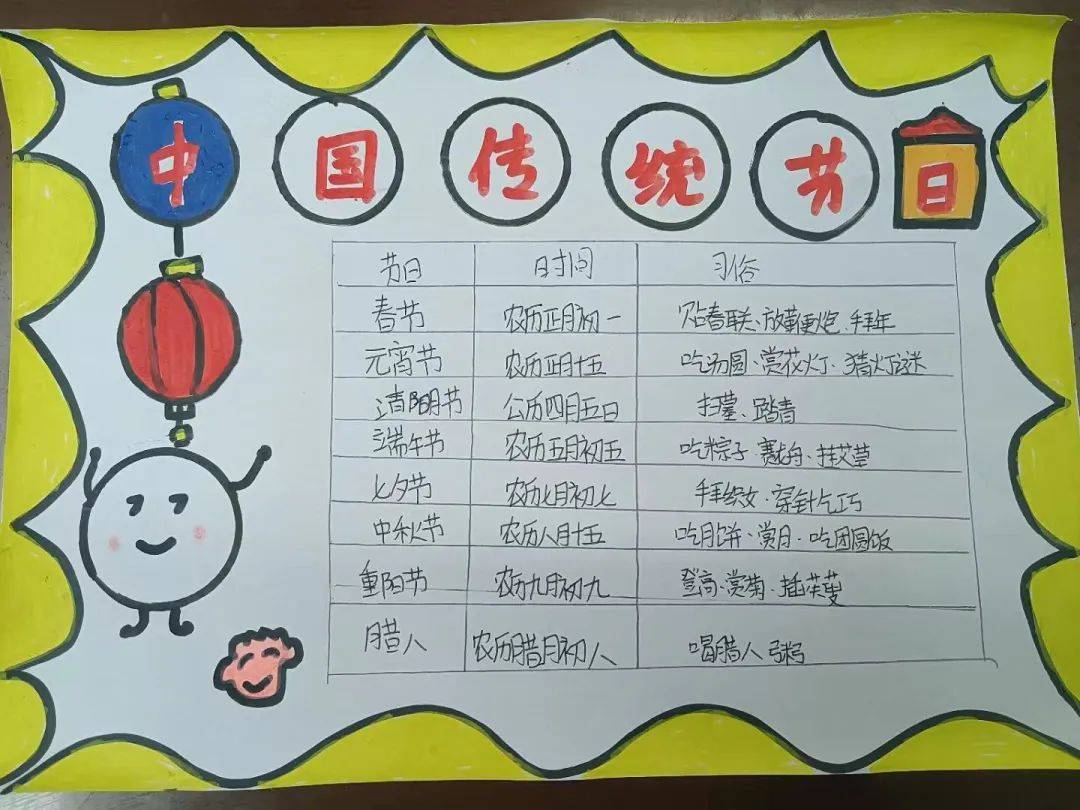 中国传统节日
节日 时间 习俗
春节 农历正月初一 贴春联、放鞭炮、拜年
元宵节 农历正月十五 吃汤圆、赏花灯、猜灯谜
清明节 公历四月五日 扫墓、踏青
端午节 农历五月初五 吃粽子、赛龙舟、挂艾草
七夕节 农历七月初七 拜织女、穿针乞巧
中秋节 农历八月十五 吃月饼、赏月、吃团圆饭
重阳节 农历九月初九 登高、赏菊、插茱萸
腊八 农历腊月初八 喝腊八粥